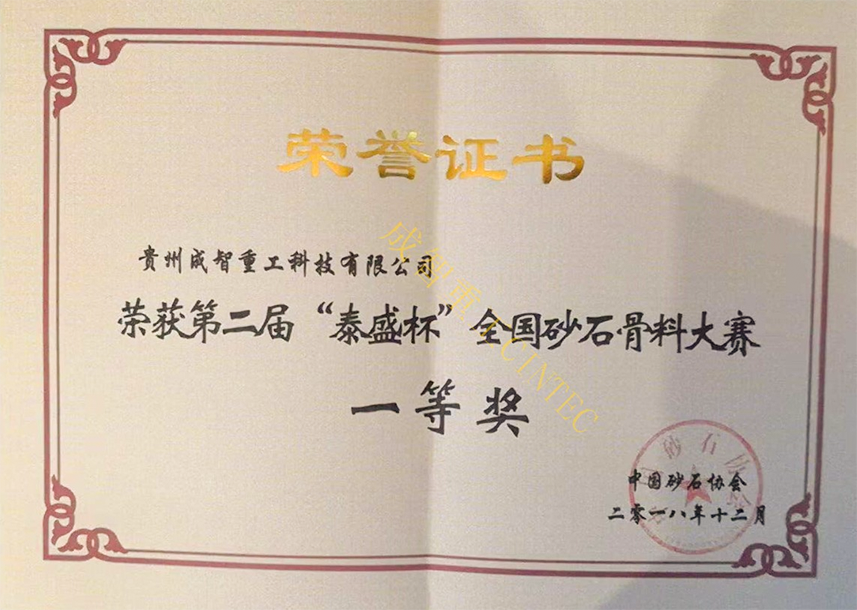 荣誉证书
貴州成智重工科技有限公司
荣获第二届“泰盛杯”全国砂石骨料大赛
一等奖
中国砂石协会
二零一八年十二月
成智重工CINTEC